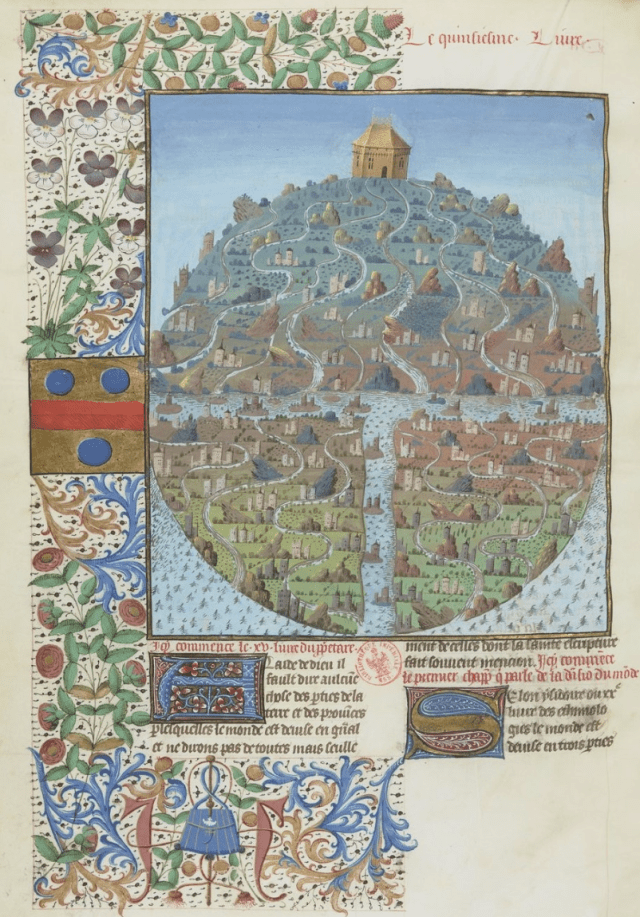 Le quinsiesme. Livre.
Icy commence le .xv. livre du ppetare
A laide de dieu il
fault dire aulcune
chose des pties de la
terre et des prouices
p lesquelles le monde est deuise en gnal
et ne dirons pas de toutes mais seulle
ment de celles dont la sainte escripture
fait souuent mencion. Icy commece
le premier chapp q parle de la diuisio du mode
Selon ysidore ou xve
liure des ethimolo
gies le monde est
deuise en trois pties